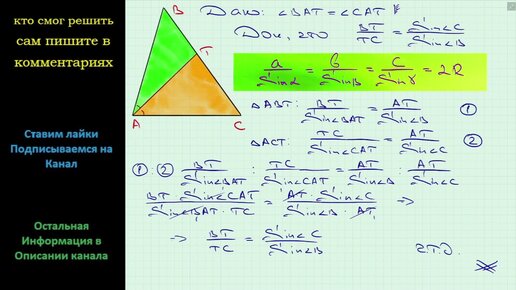 кто смог решить
сам пишите в
комментариях
Ставим лайки
Подписываемся на
Канал
Остальная
Информация в
Описании канала
B
T
A
C
Дано: ∠BAT = ∠CAT
Док, что BT/TC = Sin∠C/Sin∠B
a/Sinα = b/Sinβ = c/Sinγ = 2R
△ABT: BT/Sin∠BAT = AT/Sin∠B ①
△ACT: TC/Sin∠CAT = AT/Sin∠C ②
①:② BT/Sin∠BAT : TC/Sin∠CAT = AT/Sin∠B : AT/Sin∠C
BT·Sin∠CAT/Sin∠BAT·TC = AT·Sin∠C/Sin∠B·AT ⇒
⇒ BT/TC = Sin∠C/Sin∠B
Ч.Т.Д.